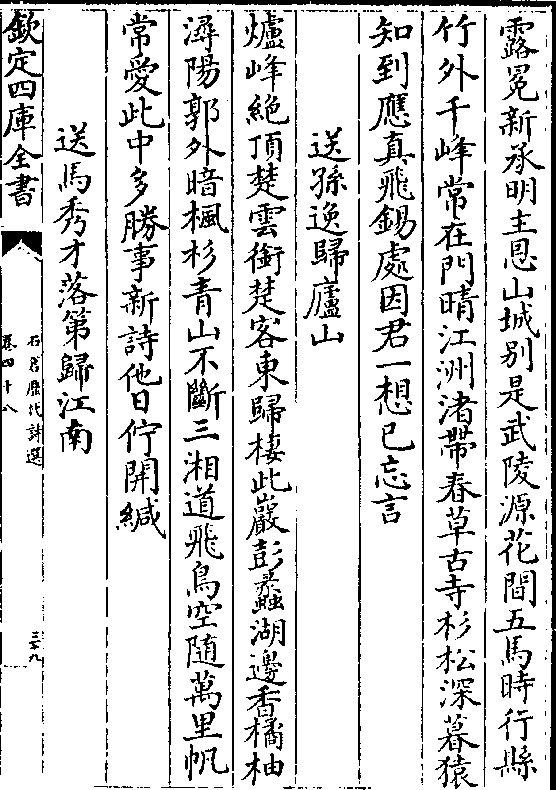 露冕新承明主恩山城别是武陵源花間五馬時行縣
竹外千峰常在門晴江洲渚帶春草古寺杉松深暮猿
知到應真飛錫處因君一想已忘言
送孫逸歸廬山
爐峰絶頂楚雲銜楚客東歸棲此巖彭蠡湖邊香橘柚
潯陽郭外暗楓杉青山不斷三湘道飛鳥空隨萬里帆
常愛此中多勝事新詩他日佇開緘
送馬秀才落第歸江南
欽定四庫全書
石倉歷代詩選
卷四十八
三十九